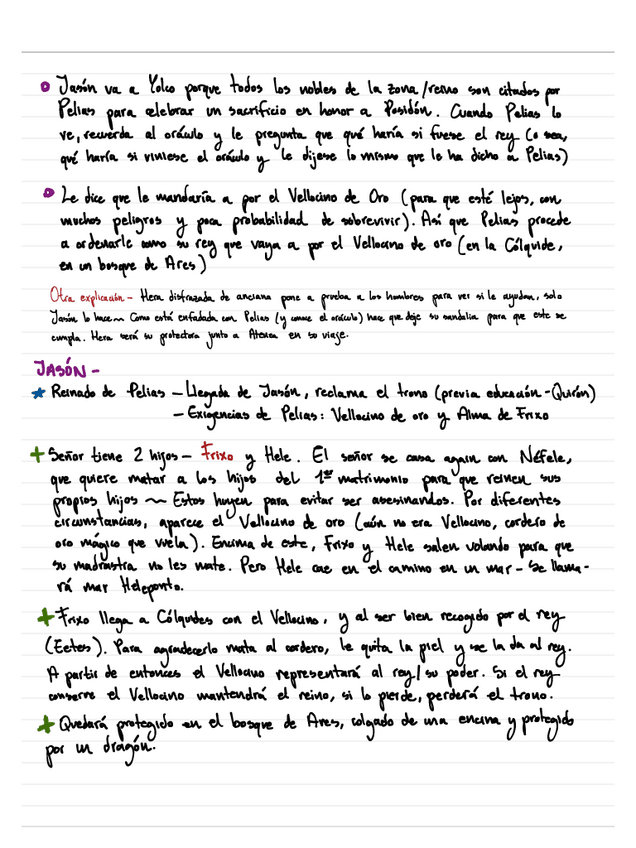 Jasón va a Yolco porque todos los nobles de la zona/reino son citados por
Pelias para celebrar un sacrificio en honor a Posidón. Cuando Pelias lo
ve, recuerda al oráculo y le pregunta que qué haría si fuese el rey (o sea,
qué haría si viniese el oráculo y le dijese lo mismo que le ha dicho a Pelias)
Le dice que le mandaría a por el Vellocino de Oro (para que esté lejos, con
muchos peligros y poca probabilidad de sobrevivir). Así que Pelias procede
a ordenarle como su rey que vaya a por el Vellocino de oro (en la Cólquide,
en un bosque de Ares)
Otra explicación - Hera disfrazada de anciana pone a prueba a los hombres para ver si le ayudan, solo
Jasón lo hace ~ Como está enfadada con Pelias (y conoce el oráculo) hace que deje su sandalia para que este se
cumpla. Hera será su protectora junto a Atenea en su viaje.
JASÓN -
★ Reinado de Pelias - Llegada de Jasón, reclama el trono (previa educación - Quirón)
- Exigencias de Pelias: Vellocino de oro y Alma de Frixo
+ Señor tiene 2 hijos - Frixo y Hele. El señor se casa again con Néfele,
que quiere matar a los hijos del 1er matrimonio para que reinen sus
propios hijos ~ Estos huyen para evitar ser asesinandos. Por diferentes
circunstancias, aparece el Vellocino de oro (aún no era Vellocino, cordero de
oro mágico que vuela). Encima de este, Frixo y Hele salen volando para que
su madrastra no les mate. Pero Hele cae en el camino en un mar - Se llama-
rá mar Heleponto.
+ Frixo llega a Cólquides con el Vellocino, y al ser bien recogido por el rey
(Eetes). Para agradecerlo mata al cordero, le quita la piel y se la da al rey.
A partir de entonces el Vellocino representará al rey/su poder. Si el rey
conserve el Vellocino mantendrá el reino, si lo pierde, perderá el trono.
+ Quedará protegido en el bosque de Ares, colgado de una encina y protegido
por un dragón.